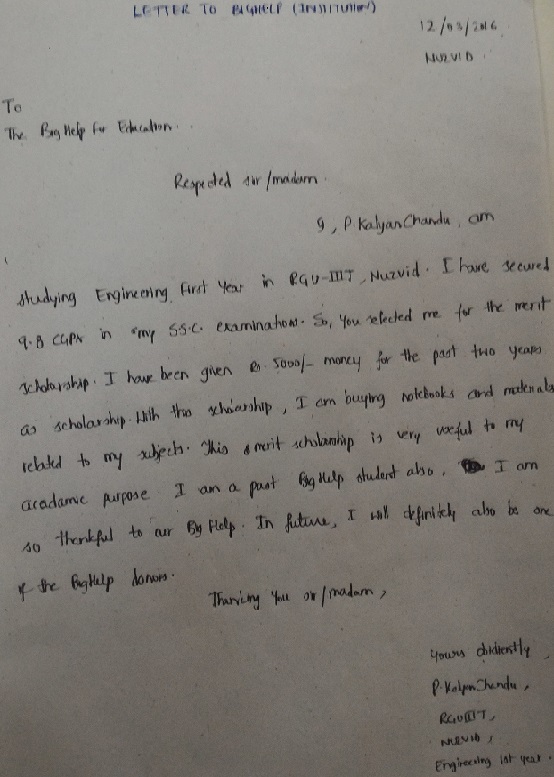 LETTER TO BIGHELP (INSTITUTION)
12/03/2016
NUZVID.
To
The Big Help for Education.
Respected sir/madam.
I, P Kalyan Chandu, am
studying Engineering first Year in RGU-IIIT, Nuzvid. I have secured
9.8 CGPA in my S.S.C. examination. So, you selected me for the merit
scholarship. I have been given Rs. 5000/- money for the past two years
as scholarship. With this scholarship, I am buying notebooks and materials
related to my subjects. This merit scholarship is very useful to my
acadamic purpose I am a past Big Help student also. I am
so thankful to our Big Help. In future, I will definitely also be one
of the BigHelp donors.
Thanking You sir/madam,
Yours obidiently
P. Kalyan Chandu,
RGUIIIT,
NUZVID,
Engineering 1st year.